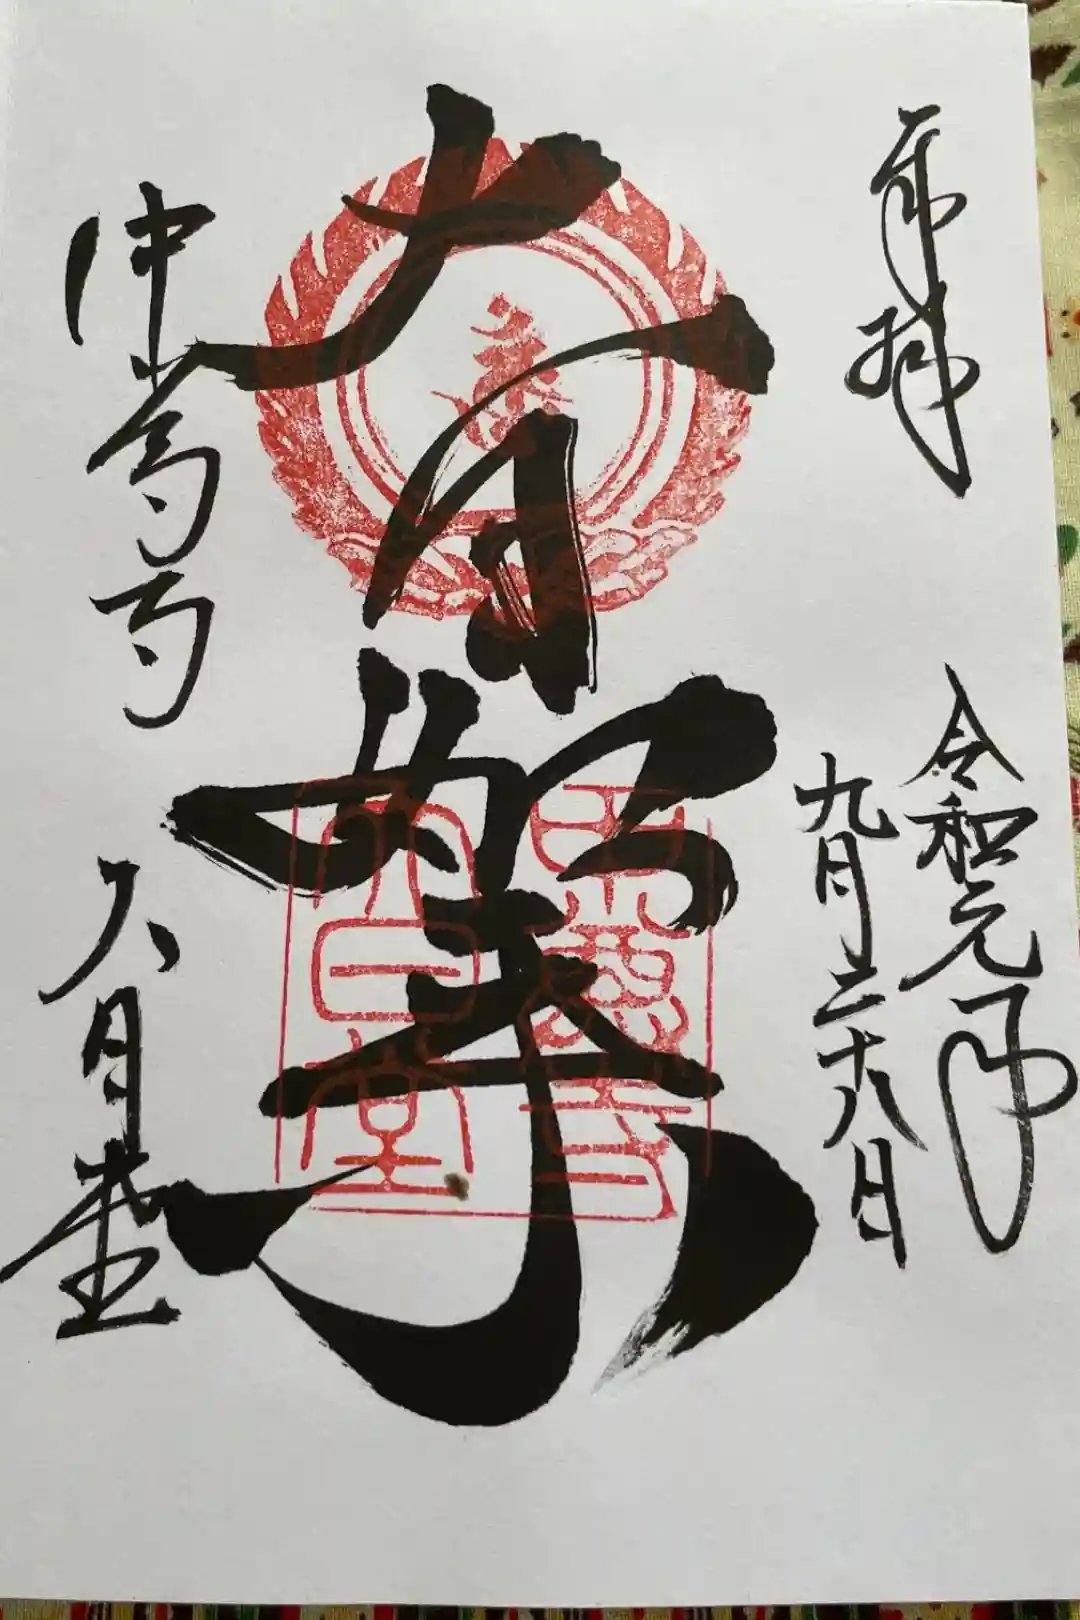 奉拝
令和元年
九月二十八日
大日如来
大日堂
大日堂